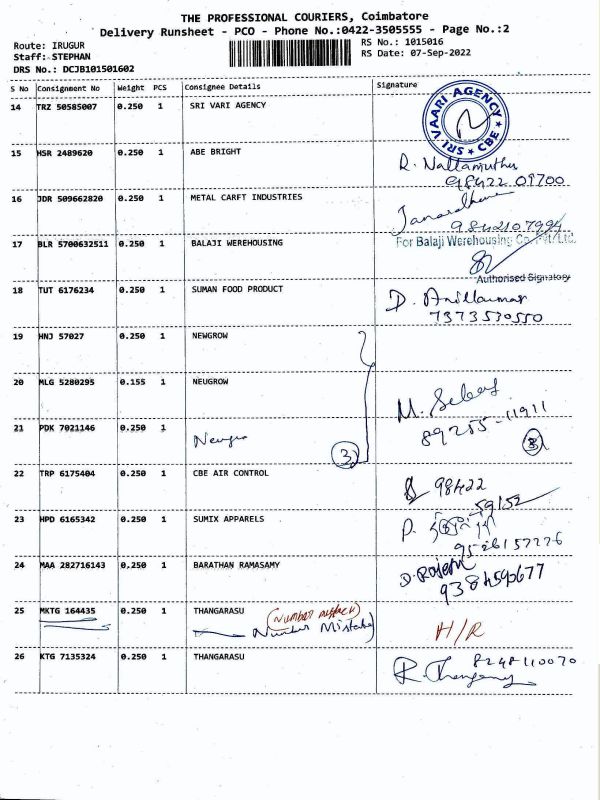 THE PROFESSIONAL COURIERS, Coimbatore
Delivery Runsheet - PCO - Phone No.:0422-3505555 - Page No.:2
Route: IRUGUR
RS No.: 1015016
Staff: STEPHAN
RS Date: 07-Sep-2022
DRS No.: DCJB101501602
S No Consignment No Weight PCS Consignee Details Signature
14 TRZ 50585007 0.250 1 SRI VARI AGENCY
SRI VAARI AGENCY CBE
15 HSR 2489620 0.250 1 ABE BRIGHT
R. Nallamuthu
98422 09700
16 JDR 509662820 0.250 1 METAL CARFT INDUSTRIES
Janardhana
9842107994
17 BLR 5700632511 0.250 1 BALAJI WEREHOUSING
For Balaji Werehousing Co. Pvt. Ltd.
Authorised Signatory
18 TUT 6176234 0.250 1 SUMAN FOOD PRODUCT
D.
7373530550
19 HNJ 57027 0.250 1 NEWGROW
20 MLG 5280295 0.155 1 NEUGROW
M.
89255-11911
21 PDK 7021146 0.250 1
3
22 TRP 6175404 0.250 1 CBE AIR CONTROL
98422
59152
23 HPD 6165342 0.250 1 SUMIX APPARELS
P.
9526157276
24 MAA 282716143 0.250 1 BARATHAN RAMASAMY
D. Rajesh
9384590677
25 MKTG 164435 0.250 1 THANGARASU
(Number mistack)
Number Mistake
H/R
26 KTG 7135324 0.250 1 THANGARASU
8248110070
R.